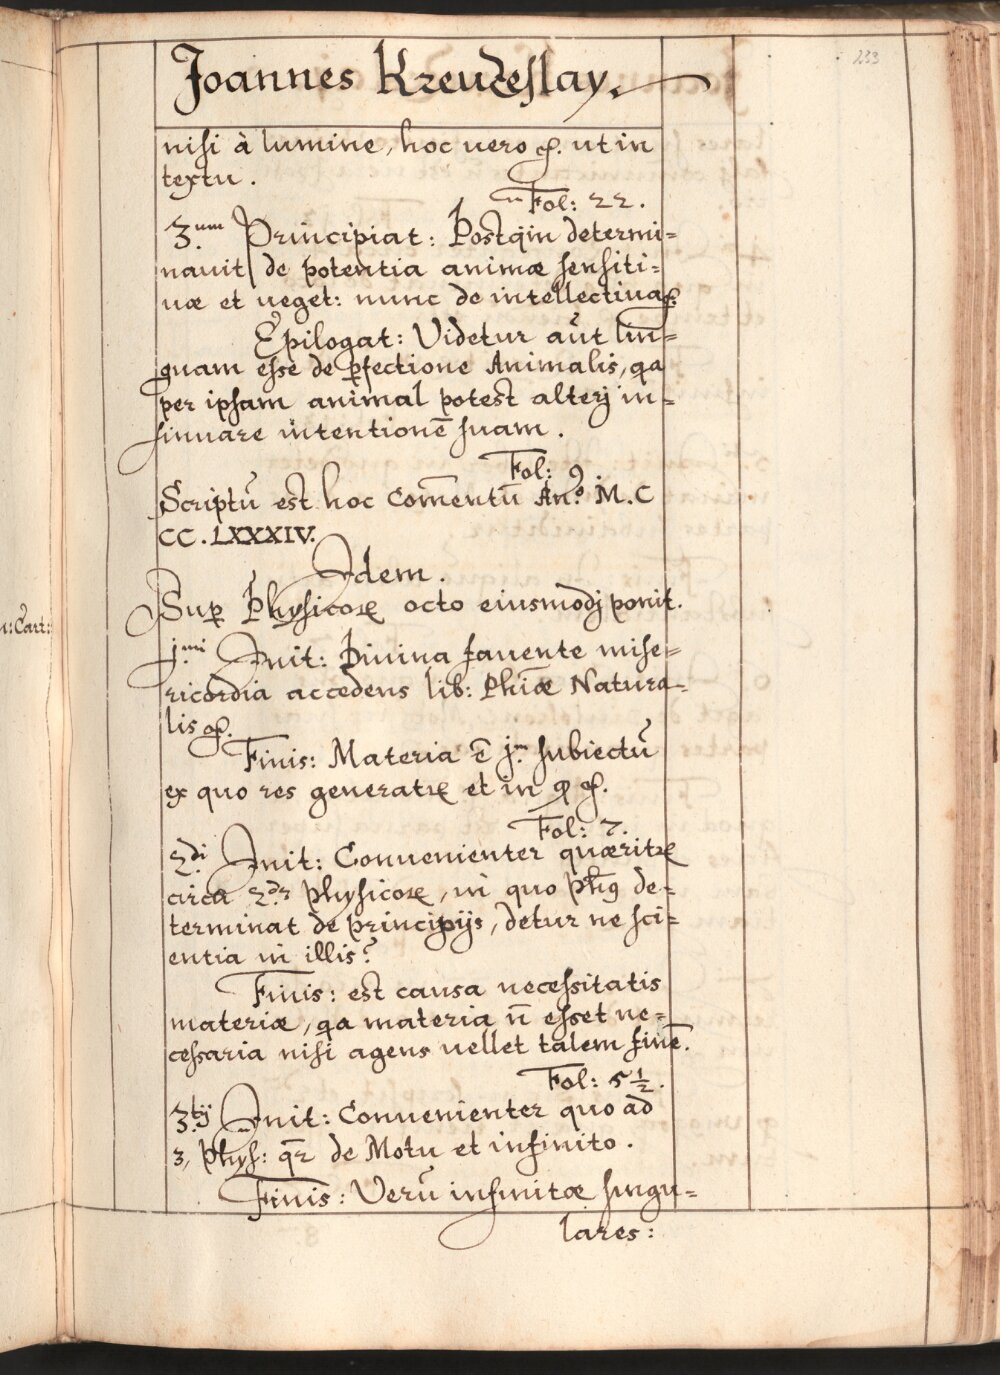 233
Joannes Kreuczeslay.
nisi à lumine, hoc uero &c. ut in
textu.
Fol: 22.
3.um Principiat: Postq̃m determi=
nauit de potentia animæ sensiti=
uæ et ueget: nunc de intellectiua &c.
Epilogat: Videtur aũt lin=
guam esse de ꝑfectione Animalis, qa
per ipsam animal potest alterj in=
sinuare intentionẽ suam.
Fol: 9
Scriptũ est hoc Com̃entũ An.o M.C
CC.LXXXIV.
Idem.
Suꝑ Physicoꝝ octo eiusmodj ponit.
u: Cart:
j.mi Init: Diuina fauente mise=
ricordia accedens lib: Phiæ Natura=
lis &c.
Finis: Materia ẽ j.m subiectũ
ex quo res generatꝝ et in q̃ &c.
Fol: 7.
2.di Init: Conuenienter quæritꝝ
circa 2.dũ physicoꝝ, in quo Phũs de=
terminat de principijs, detur ne sci=
entia in illis?
Finis: est causa necessitatis
materiæ, qa materia ñ esset ne=
cessaria nisi agens uellet talem finẽ.
Fol: 5 1/2.
3.tij Init: Conuenienter quo ad
3, phys: qr̃ de Motu et infinito.
Finis: Verũ infinitæ singu=
lares: